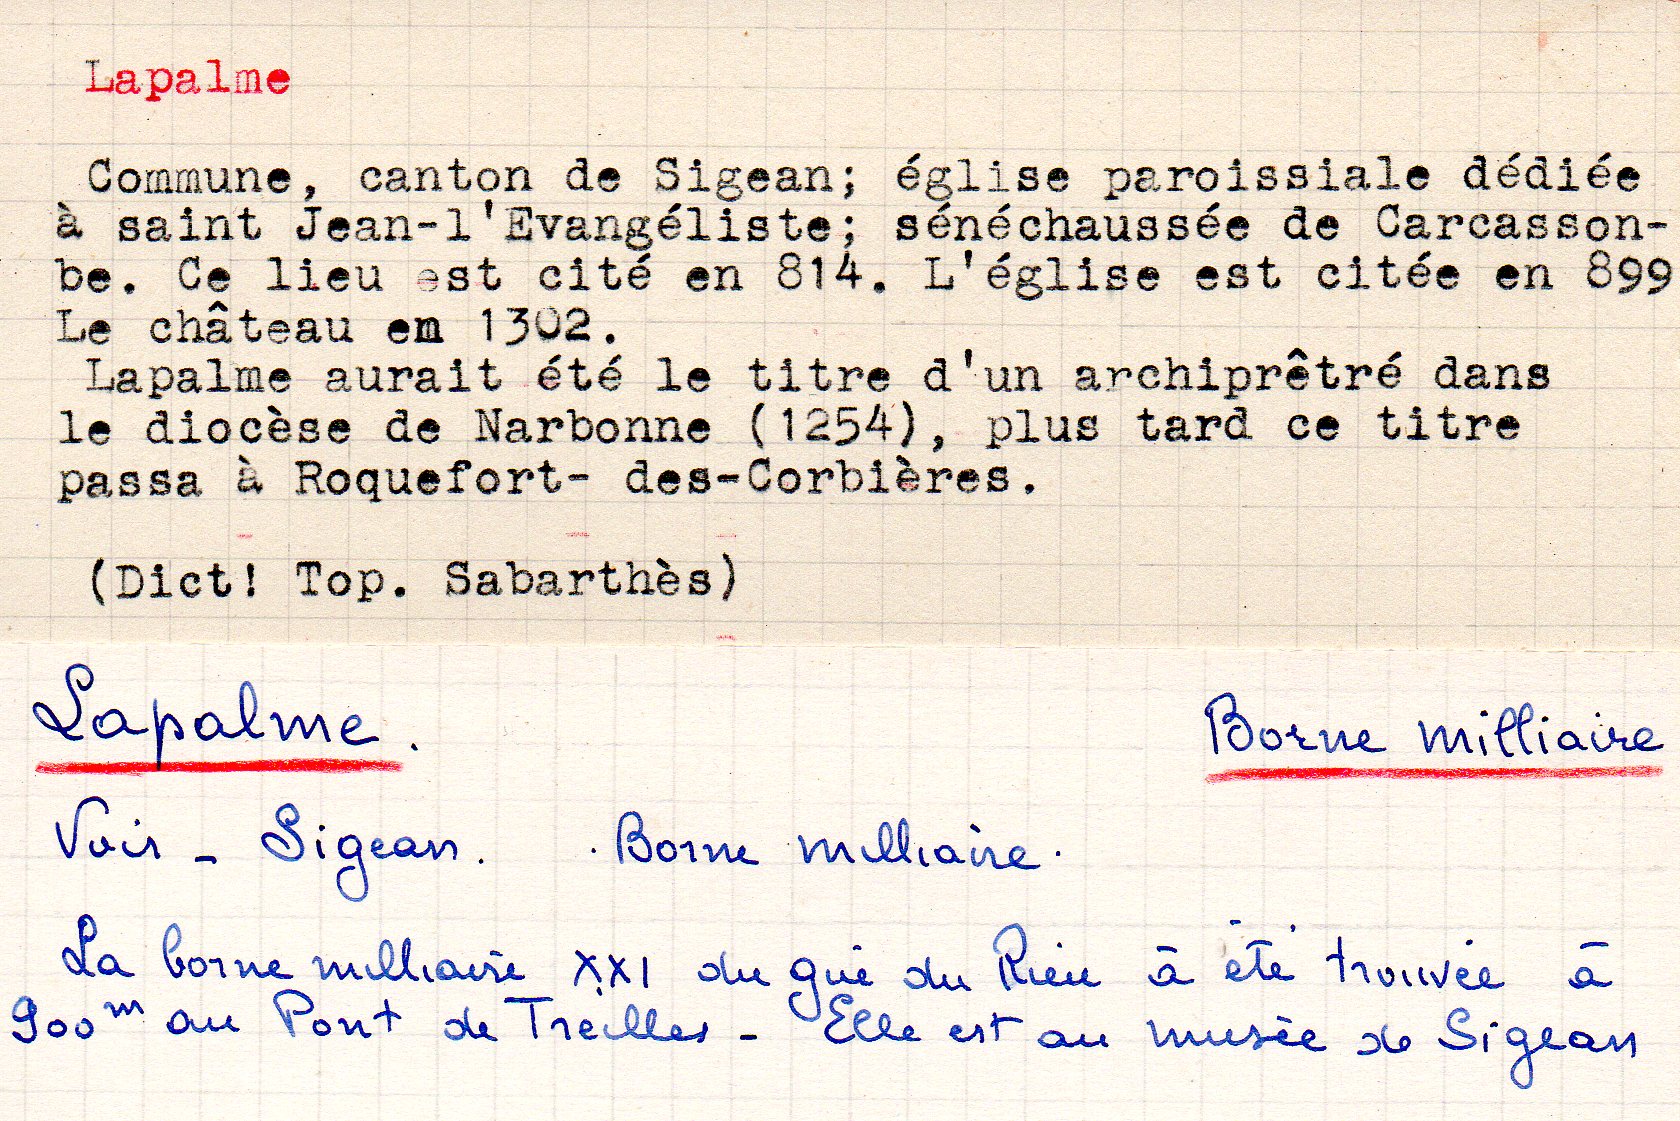 Lapalme
Commune, canton de Sigean; église paroissiale dédiée
à saint Jean-l'Evangéliste; sénéchaussée de Carcasson-
be. Ce lieu est cité en 814. L'église est citée en 899
Le château en 1302.
Lapalme aurait été le titre d'un archiprêtré dans
le diocèse de Narbonne (1254), plus tard ce titre
passa à Roquefort- des-Corbières.
(Dict! Top. Sabarthès)
Lapalme. Borne milliaire
Voir - Sigean. . Borne milliaire.
La borne milliaire XXI du gué du Rieu à été trouvée à
900m au Pont de Treilles - Elle est au musée de Sigean